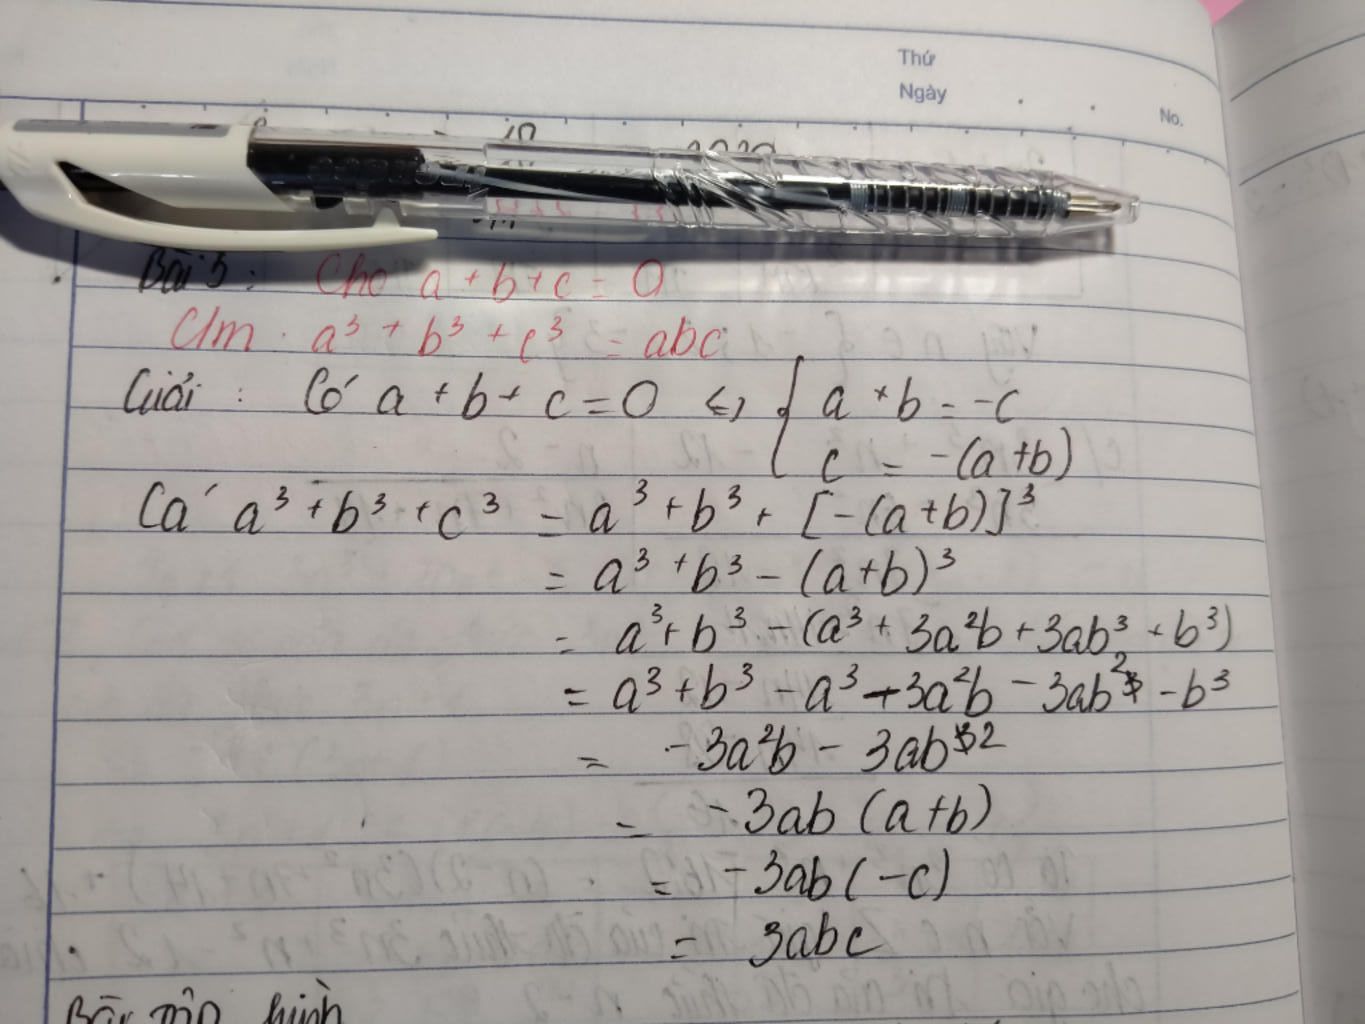 Thứ
Ngày
No.
Bài 5: Cho a + b + c = 0
C/m. a³ + b³ + c³ = abc
Giải: Có a + b + c = 0 <=> { a + b = -c
c = -(a+b)
Ca´ a³ + b³ + c³ = a³ + b³ + [-(a+b)]³
= a³ + b³ - (a+b)³
= a³ + b³ - (a³ + 3a²b + 3ab³ + b³)
= a³ + b³ - a³ - 3a²b - 3ab² - b³
= -3a²b - 3ab²
= -3ab (a+b)
= -3ab (-c)
= 3abc
hình